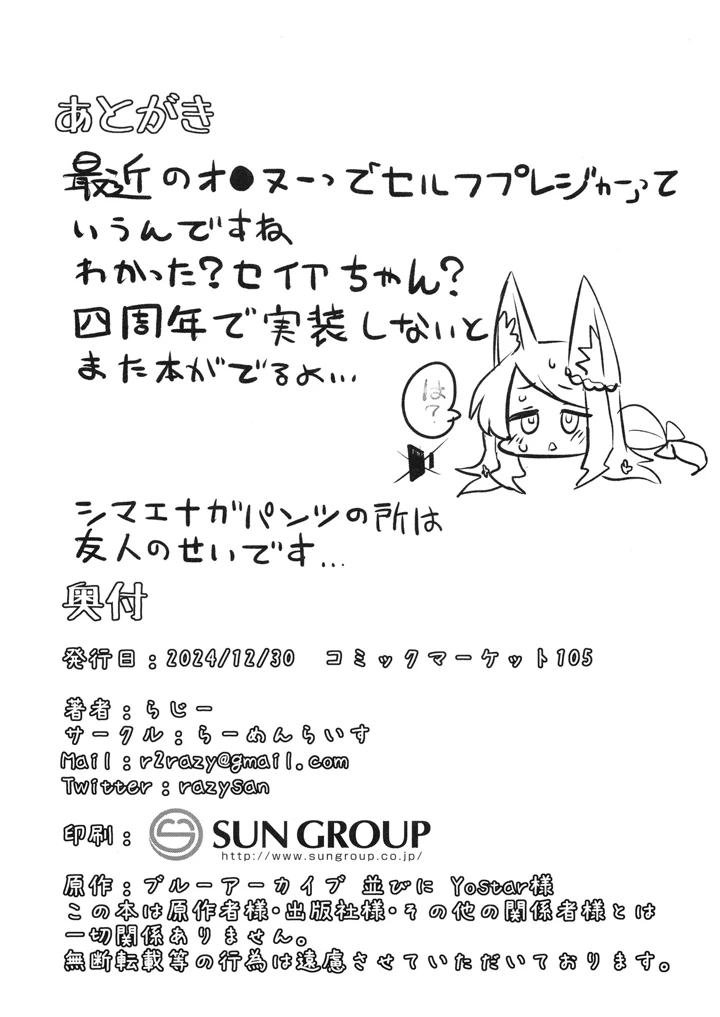 あとがき
最近のオ●ヌーってセルフプレジャーって
いうんですね
わかった?セイアちゃん?
四周年で実装しないと
また本がでるよ…
は?
シマエナガパンツの所は
友人のせいです…
奥付
発行日:2024/12/30 コミックマーケット105
著者:らじー
サークル:らーめんらいす
Mail:r2razy@gmail.com
Twitter:razysan
印刷: SUN GROUP
http://www.sungroup.co.jp/
原作:ブルーアーカイブ 並びに Yostar様
この本は原作者様・出版社様・その他の関係者様とは
一切関係ありません。
無断転載等の行為は遠慮させていただいております。